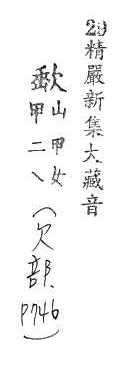 29精嚴新集大藏音
歃
山甲女
甲二、
(欠部 P746)